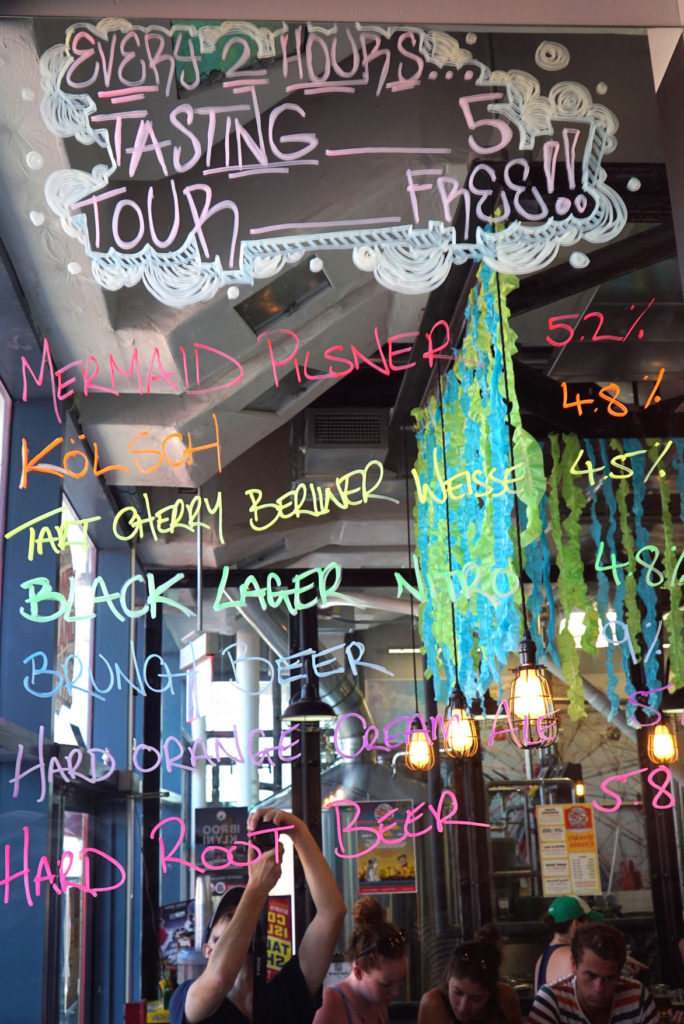 EVERY 2 HOURS...
TASTING ____ 5
TOUR ____ FREE!!
MERMAID PILSNER 5.2%
KÖLSCH 4.8%
TART CHERRY BERLINER WEISSE 4.5%
BLACK LAGER NITRO 4.8%
BRUNCH BEER 9%
HARD ORANGE CREAM ALE 5
HARD ROOT BEER 5.8
BROO
KLYN